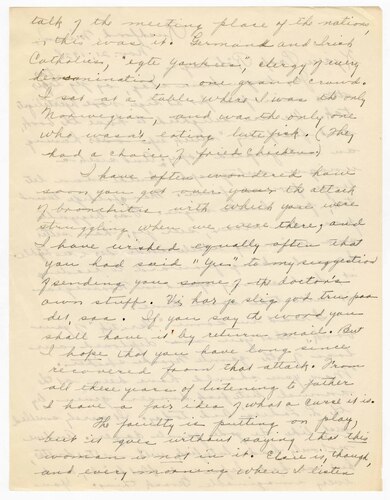 talk of the meeting place of the nations,
this was it. Germans and Irish
Catholics, "egte Yankees", clergy of every
denomination, - one grand crowd.
I sat at a table where I was the only
Norwegian and was the only one
who wasn't eating lutefisk. (They
had a choice of fried chicken.)
I have often wondered how
soon you got over your the attack
of bronchitis with which you were
struggling when we were there, and
I have wished equally often that
you had said "Yes" to my suggestion
of sending you some of the doctor's
own stuff. Vi har jo slig god tru paa
det, saa. If you say the word you
shall have it by return mail. But
I hope that you have long since
recovered from that attack. From
all these years of listening to father
I have a fair idea of what a curse it is.
The faculty is putting on play,
but it goes without saying that this
woman is not in it. Clair is, though,
and every morning when I listen